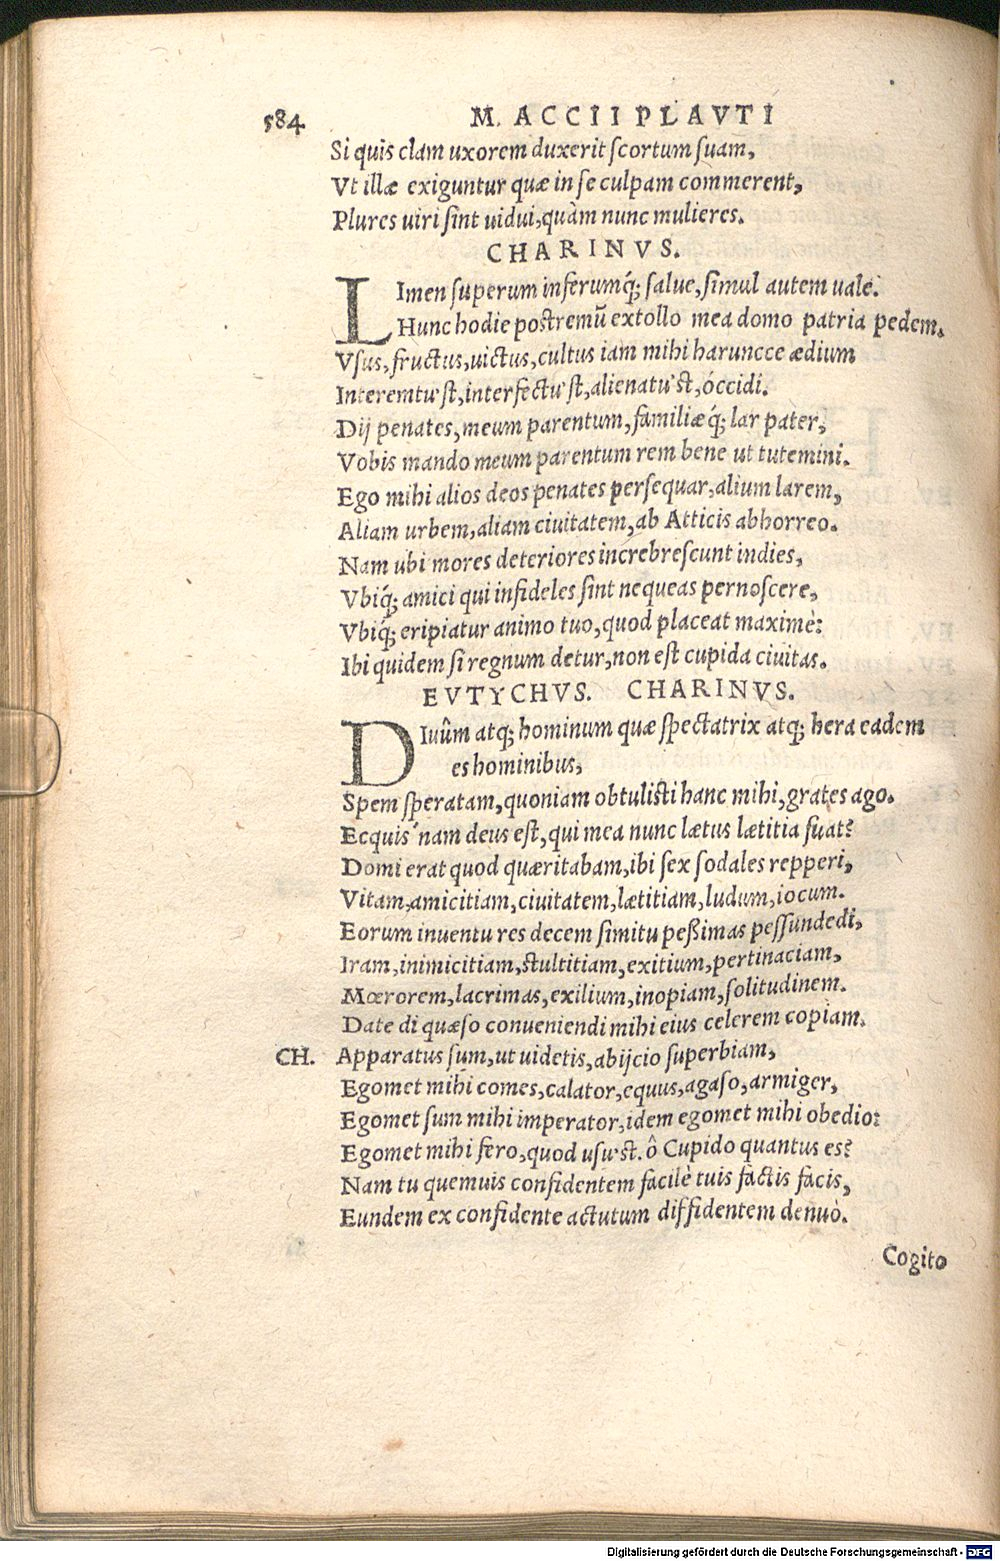 584 M. ACCII PLAVTI
Si quis clam uxorem duxerit ſcortum ſuam,
Vt illæ exiguntur quæ in ſe culpam commerent,
Plures uiri ſint uidui, quàm nunc mulieres.
CHARINVS.
LImen ſuperum inferumq́; ſalue, ſimul autem uale.
Hunc hodie poſtremũ extollo mea domo patria pedem.
Vſus, fructus, uictus, cultus iam mihi haruncce ædium
Interemtu'ſt, interfectu'ſt, alienatu'ſt, óccidi.
Dij penates, meum parentum, familiæq́; lar pater,
Vobis mando meum parentum rem bene ut tutemini.
Ego mihi alios deos penates perſequar, alium larem,
Aliam urbem, aliam ciuitatem, ab Atticis abhorreo.
Nam ubi mores deteriores increbreſcunt indies,
Vbiq́; amici qui infideles ſint nequeas pernoſcere,
Vbiq́; eripiatur animo tuo, quod placeat maximè:
Ibi quidem ſi regnum detur, non eſt cupida ciuitas.
EVTYCHVS. CHARINVS.
DIuûm atq; hominum quæ ſpectatrix atq; hera eadem
es hominibus,
Spem ſperatam, quoniam obtuliſti hanc mihi, grates ago.
Ecquis'nam deus eſt, qui mea nunc lætus lætitia fuat?
Domi erat quod quæritabam, ibi ſex ſodales repperi,
Vitam, amicitiam, ciuitatem, lætitiam, ludum, iocum.
Eorum inuentu res decem ſimitu peßimas peſſundedi,
Iram, inimicitiam, ſtultitiam, exitium, pertinaciam,
Mœrorem, lacrimas, exilium, inopiam, ſolitudinem.
Date di quæſo conueniendi mihi eius celerem copiam.
CH. Apparatus ſum, ut uidetis, abijcio ſuperbiam,
Egomet mihi comes, calator, equus, agaſo, armiger,
Egomet ſum mihi imperator, idem egomet mihi obedio:
Egomet mihi fero, quod uſu'ſt. ô Cupido quantus es?
Nam tu quemuis confidentem facilè tuis factis facis,
Eundem ex confidente actutum diffidentem denuò.
Cogito
Digitalisierung gefördert durch die Deutsche Forschungsgemeinschaft - DFG